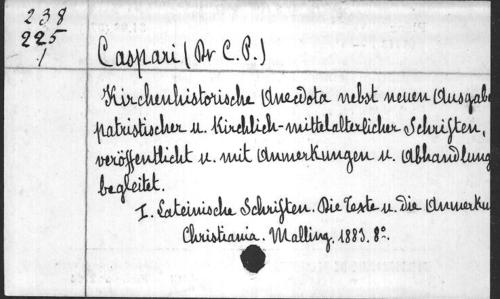 238
225
/
Caspari (Dr C.P.)
Kirchenhistorische Anecdota nebst neuen Ausgabe
patristischer u. kirchlich-mittelalterlicher Schriften,
veröffentlicht u. mit Anmerkungen u. Abhandlung
begleitet.
I. Lateinische Schriften. Die Texte u. die Anmerku
Christiania. Malling. 1883. 8º.